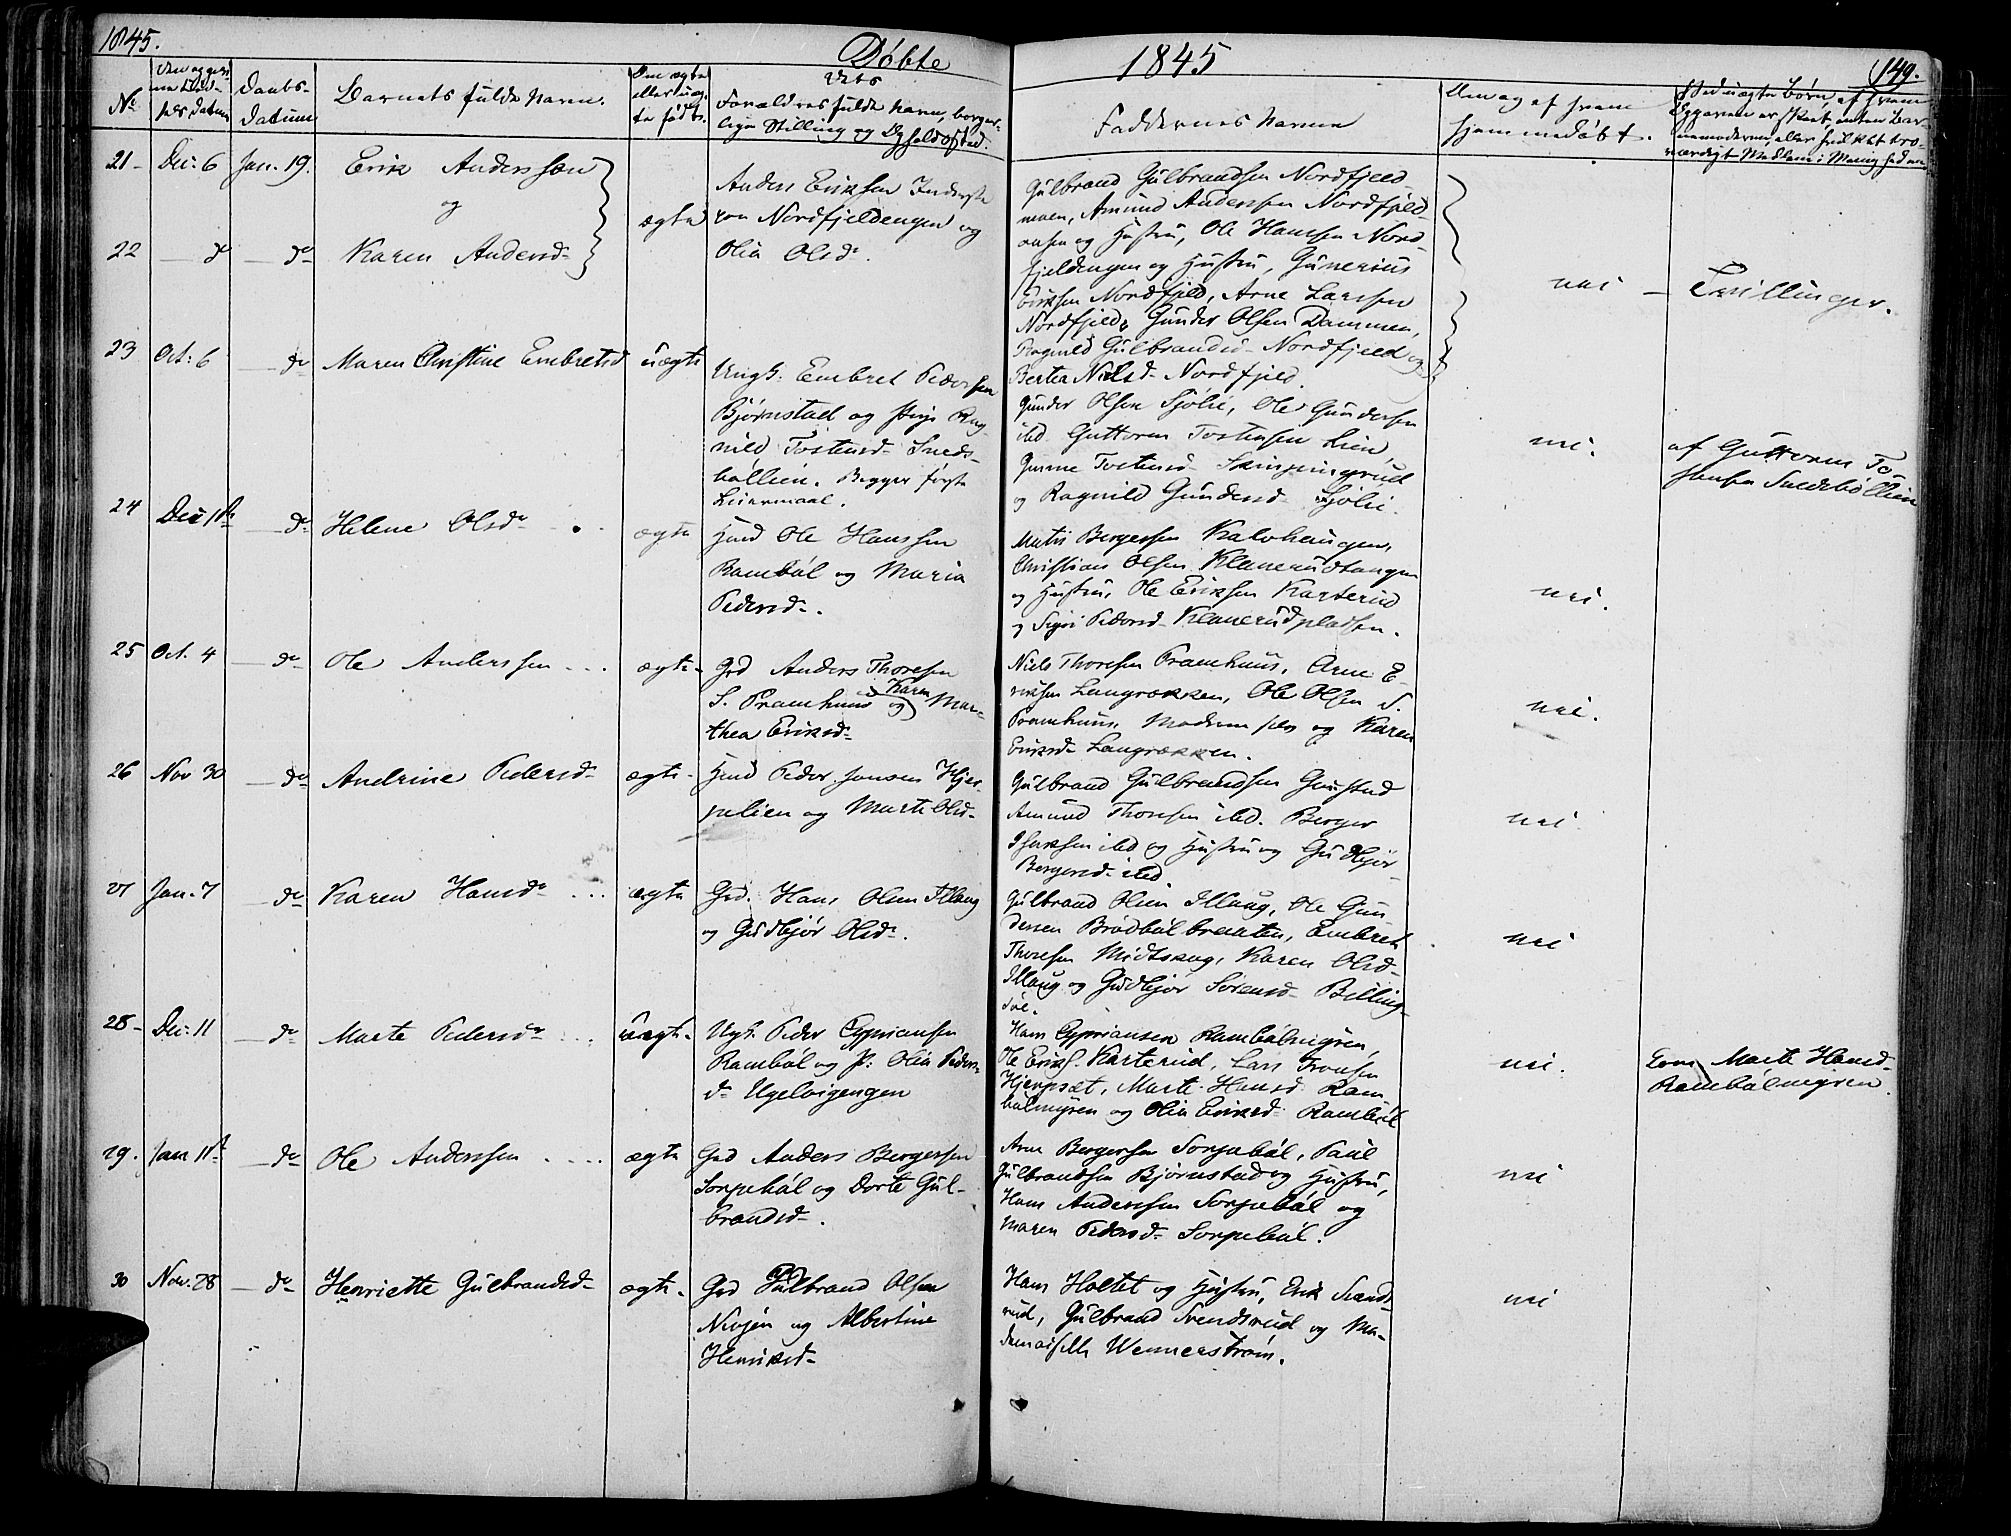 1845.
Døbte
1845
149.
No
Daabs-
Datum
Barnets fulde Navn.
Den ægte
eller uæg-
te fødte.
Dets
Forældres fulde Navn, borger-
lige Stilling og Opholdssted.
Faddernes Navne
Om og af hvem
hjemmedøbt.
21 - Dec: 6 Jan. 19. Erik Anderssøn
og
22 — do — do Karen Andersd-
ægte
Anders Eriksen Inderste
paa Nordfjeldengen og
Olia Olsd.
Gulbrand Gulbrandsen Nordfjeld
moen, Amund Anderssen Nordfjeld-
aasen og Hustru, Ole Hanssen Nord-
fjeldengen og Hustru, Gunerius
Eriksen Nordfjeld, Arne Larssen
Nordfjeld, Gunder Olsen Dammen,
Ragnild Gulbrandsd- Nordfjeld og
Bertea Nielsd- Nordfjeld.
nei — Tvillinger.
23 Oct: 6 — do Maren Christine Embretsd uægte
Ungk: Embret Pederssen
Bjørnstad og Pige Rag-
nild Tostensd- Sneds-
böllien. Begges første
Leiermaal.
Gunder Olsen Sjölie, Ole Gundersen
ibd. Guttorm Tostensen Lien,
Gunne Tostensd-
og Ragnild Gundersd- Sjölie.
nei.
af Guttorm To
stensen Snedsböllien
24 Dec 18 — do Helene Olsd
ægte
Hmd Ole Hanssen
Rambøl og Maria
Pedersd-.
Matis Bergersen Kalvhaugen,
Christian Olsen Klanerudtangen
og Hustru, Ole Eriksen Karterud
og Sigri Pedersd- Klanerudpladsen.
nei.
25 Oct. 4 — do Ole Anderssen ægte-
Grd Anders Thoresen
S. Pramhuus og Karen Mar-
thea Eriksd-
Niels Thoresen Pramhuus, Arne E-
riksen Langrækken, Ole Olsen S.
Pramhuus, Moderen selv og Karen
Eriksd- Langrækken.
nei.
26 Nov 30 — do Andrine Pedersd- ægte-
Hmd Peder Jonsen Hjer-
pelien og Marte Olsd-
Gulbrand Gulbrandsen Gunstad
Amund Thoresen ibd. Berger
Isaksen ibd og Hustru og Gudbjör
Bergersd- ibd.
nei
27 Jan. 7 — do Karen Hansd ægte
Grd. Hans Olsen Illaug
og Gudbjør Olsd.
Gulbrand Olsen Illaug, Ole Gun-
dersen Brødbølbraaten, Embret
Thoresen Midtskog, Karen Olsd-
Illaug og Gudbjør Sørensd- Billing-
nei
28 - Dec: 11 — do Marte Pedersd uægte-
Ungk. Peder Cypriansen
Rambøl og P. Olia Peders-
d- Ugelvigengen
Hans Cypriansen Rambølmyren,
Ole Eriks. Karterud, Lars Tronsen
Hjerpsæt, Marte Hansd- Ram
bølmyren og Olia Eriksd- Rambøl
nei.
Marte Hansd-
Rambølmyren
29. Jan 11 — do Ole Anderssen ægte
Grd Anders Bergerssen
Sorpebøl og Dorte Gul-
brandsd-.
Arne Bergersen Sorpebøl, Paul
Gulbrandsen Bjørnstad og Hustru,
Hans Anderssen Sorpebøl og
Maren Pedersd- Sorpebøl.
nei
30 Nov. 28 — do Henriette Gulbrandsd- ægte-
Grd Gulbrand Olsen
Nivgen og Albertine
Henriksd-
Hans Holtet og Hustru, Erik Svends-
rud, Gulbrand Svendsrud og Ma-
demoiselle Wennerstrøm.
nei